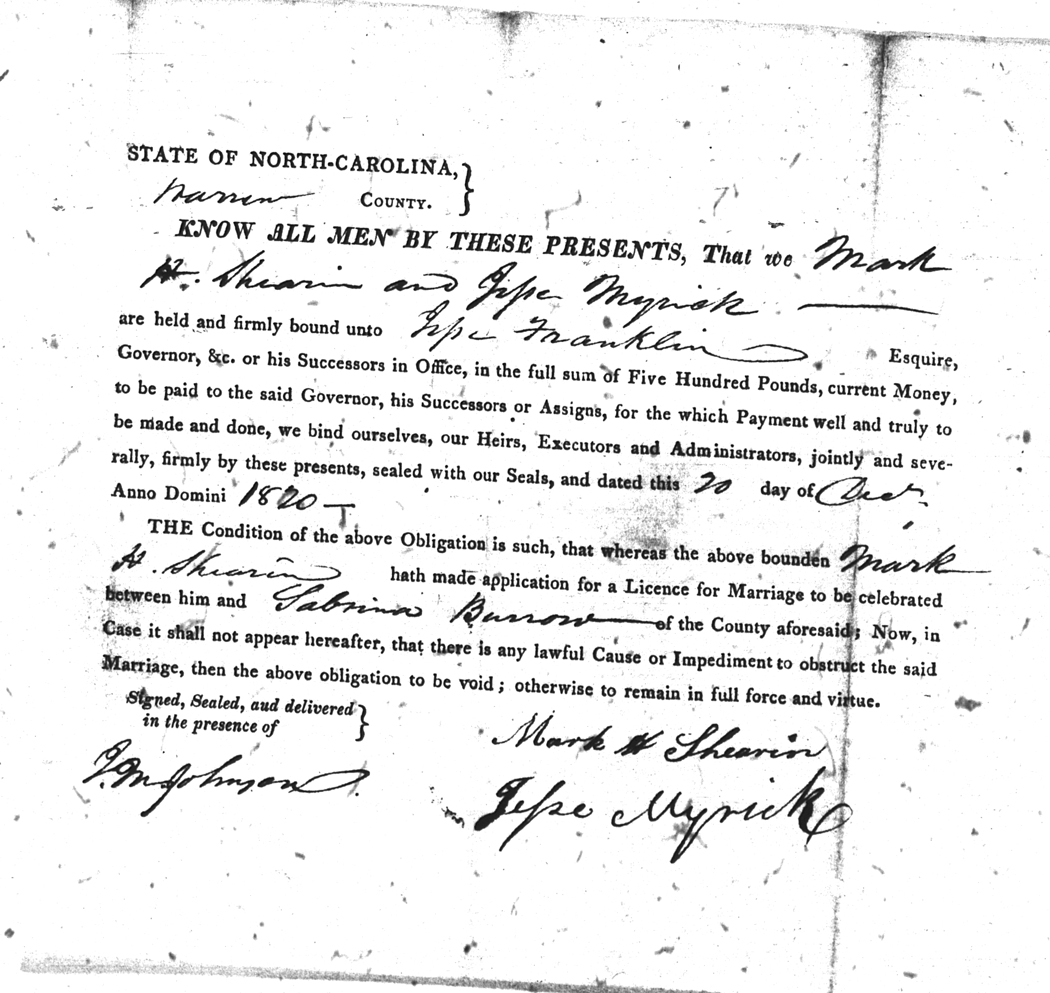 STATE OF NORTH-CAROLINA, }
Warren COUNTY.
KNOW ALL MEN BY THESE PRESENTS, That we Mark
H. Shearin and Jesse Myrick
are held and firmly bound unto Jesse Franklin Esquire,
Governor, &c. or his Successors in Office, in the full sum of Five Hundred Pounds, current Money,
to be paid to the said Governor, his Successors or Assigns, for the which Payment well and truly to
be made and done, we bind ourselves, our Heirs, Executors and Administrators, jointly and seve-
rally, firmly by these presents, sealed with our Seals, and dated this 20 day of Decr.
Anno Domini 1820
THE Condition of the above Obligation is such, that whereas the above bounden Mark
H. Shearin hath made application for a Licence for Marriage to be celebrated
between him and Sabrina Burrow of the County aforesaid; Now, in
Case it shall not appear hereafter, that there is any lawful Cause or Impediment to obstruct the said
Marriage, then the above obligation to be void; otherwise to remain in full force and virtue.
Signed, Sealed, aud delivered }
in the presence of
Mark H Shearin
J. M Johnson
Jesse Myrick